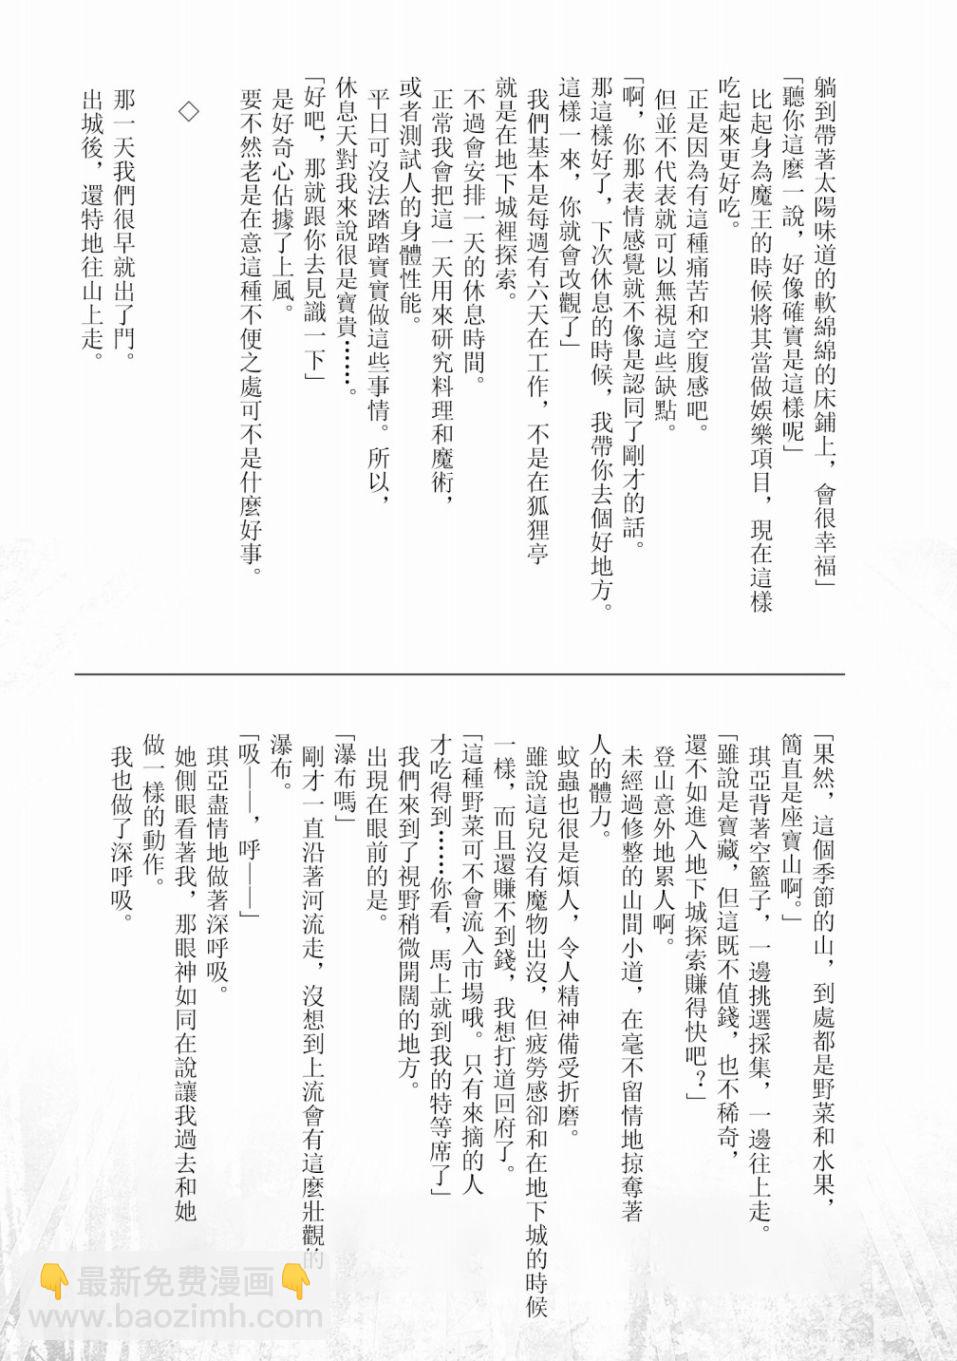 躺到帶著太陽味道的軟綿綿的床鋪上，會很幸福」
「聽你這麼一說，好像確實是這樣呢」
比起身為魔王的時候將其當做娛樂項目，現在這樣
吃起來更好吃。
正是因為有這種痛苦和空腹感吧。
但並不代表就可以無視這些缺點。
「啊，你那表情感覺就不像是認同了剛才的話。
那這樣好了，下次休息的時候，我帶你去個好地方。
這樣一來，你就會改觀了」
我們基本是每週有六天在工作，不是在狐狸亭
就是在地下城裡探索。
不過會安排一天的休息時間。
正常我會把這一天用來研究料理和魔術，
或者測試人的身體性能。
平日可沒法踏踏實實做這些事情。所以，
休息天對我來說很是寶貴……。
「好吧，那就跟你去見識一下」
是好奇心佔據了上風。
要不然老是在意這種不便之處可不是什麼好事。
◇
那一天我們很早就出了門。
出城後，還特地往山上走。
「果然，這個季節的山，到處都是野菜和水果，
簡直是座寶山啊。」
琪亞背著空籃子，一邊挑選採集，一邊往上走。
「雖說是寶藏，但這既不值錢，也不稀奇，
還不如進入地下城探索賺得快吧？」
登山意外地累人啊。
未經過修整的山間小道，在毫不留情地掠奪著
人的體力。
蚊蟲也很是煩人，令人精神備受折磨。
雖說這兒沒有魔物出沒，但疲勞感卻和在地下城的時候
一樣，而且還賺不到錢，我想打道回府了。
「這種野菜可不會流入市場哦。只有來摘的人
才吃得到……你看，馬上就到我的特等席了」
我們來到了視野稍微開闊的地方。
出現在眼前的是。
「瀑布嗎」
剛才一直沿著河流走，沒想到上流會有這麼壯觀的
瀑布。
「吸——，呼——」
琪亞盡情地做著深呼吸。
她側眼看著我，那眼神如同在說讓我過去和她
做一樣的動作。
我也做了深呼吸。
👇最新免费漫画👇
www.baozimh.com